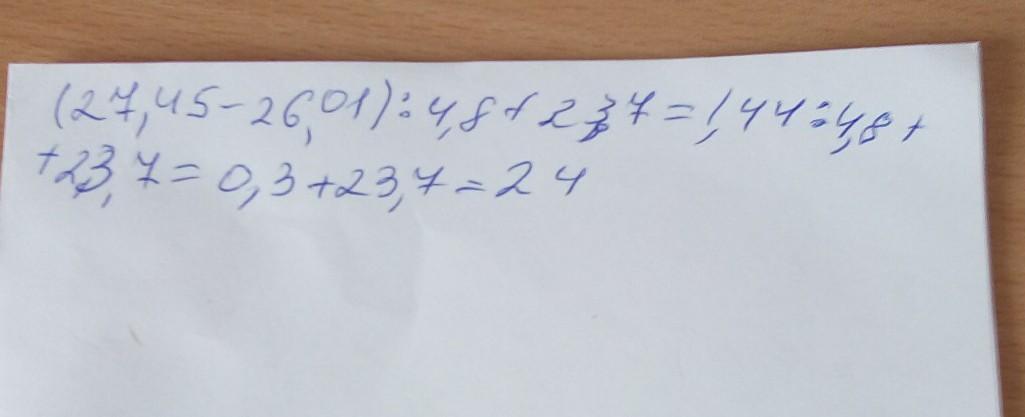 (27,45-26,01):4,8+23,7=1,44:4,8+
+23,7=0,3+23,7=24